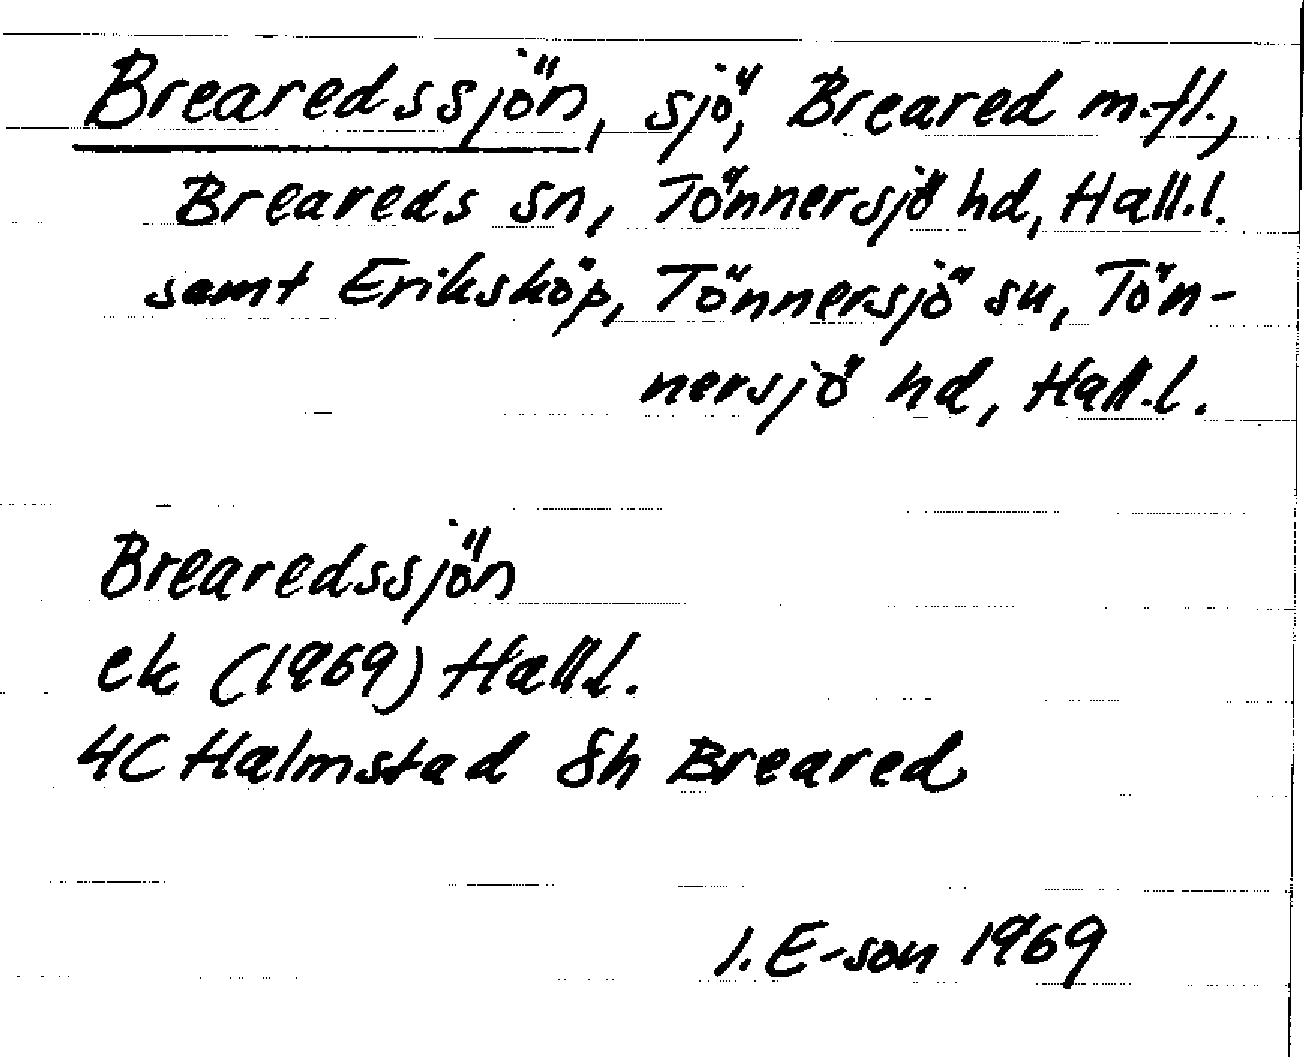 Brearedssjön, sjö, Breared m.fl.,
Breareds sn, Tönnersjö hd, Hall.l.
samt Eriksköp, Tönnersjö sn, Tön-
nersjö hd, Hall.l.
Brearedssjön
ek (1969) Hall.l.
4C Halmstad 8h Breared
I. E-son 1969